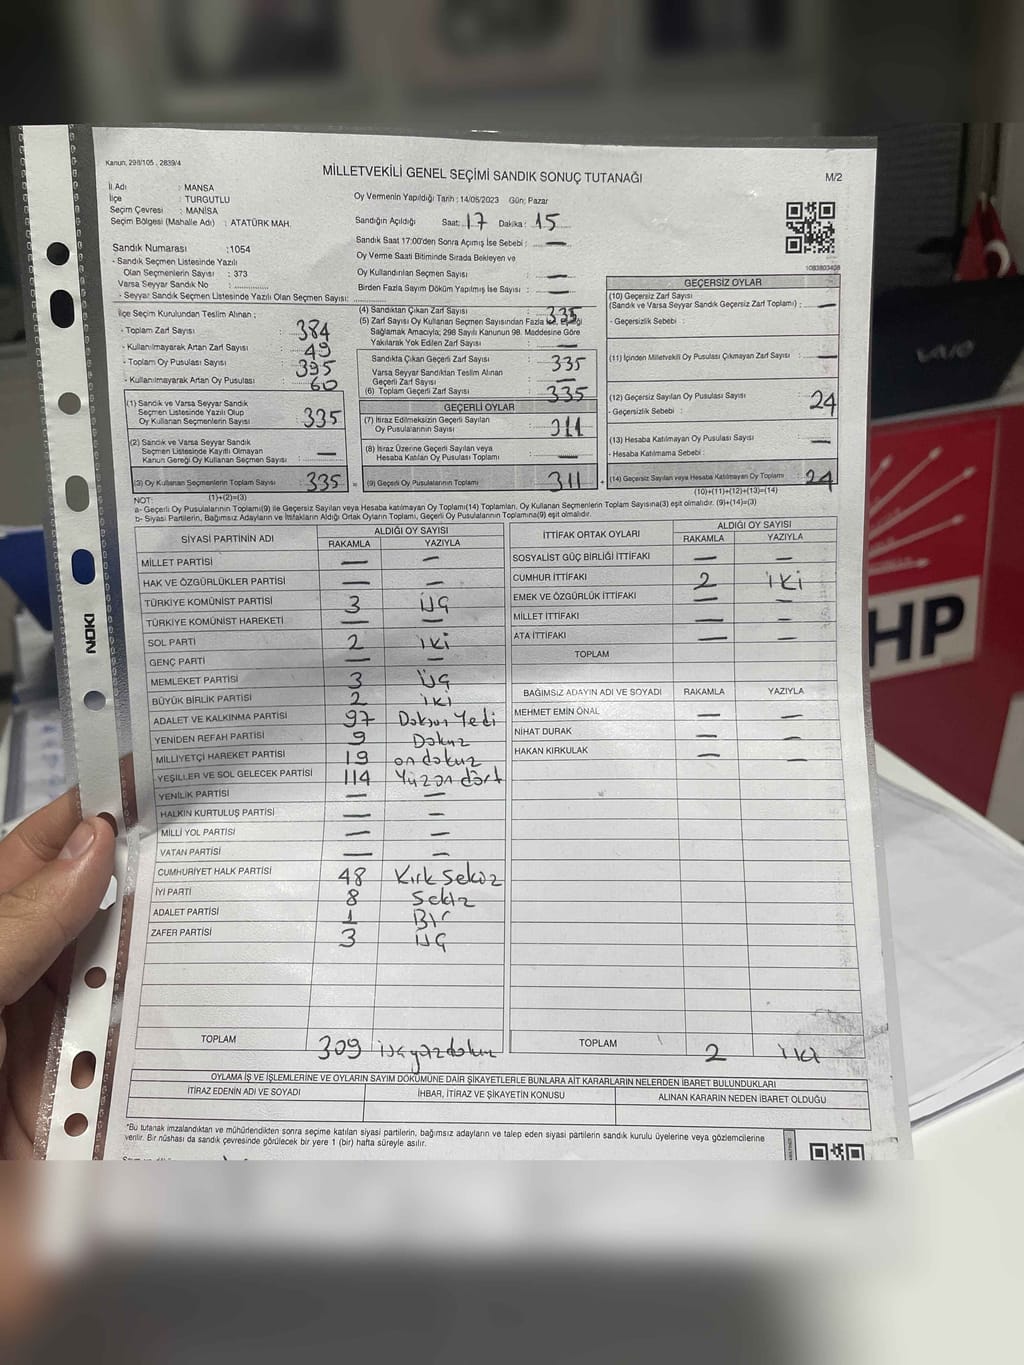 Kanun, 298/105 , 2839/4
MİLLETVEKİLİ GENEL SEÇİMİ SANDIK SONUÇ TUTANAĞI
M/2
İl Adı : MANSA
İlçe : TURGUTLU
Seçim Çevresi : MANİSA
Seçim Bölgesi (Mahalle Adı) : ATATÜRK MAH.
Oy Vermenin Yapıldığı Tarih : 14/05/2023 Gün: Pazar
Sandığın Açıldığı Saat: 17 Dakika: 15
Sandık Saat 17:00'den Sonra Açımış İse Sebebi : —
Oy Verme Saati Bitiminde Sırada Bekleyen ve
Oy Kullandırılan Seçmen Sayısı : —
Birden Fazla Sayım Döküm Yapılmış İse Sayısı : —
1083803408
Sandık Numarası :1054
- Sandık Seçmen Listesinde Yazılı
Olan Seçmenlerin Sayısı : 373
Varsa Seyyar Sandık No :
- Seyyar Sandık Seçmen Listesinde Yazılı Olan Seçmen Sayısı:
İlçe Seçim Kurulundan Teslim Alınan ;
- Toplam Zarf Sayısı : 384
- Kullanılmayarak Artan Zarf Sayısı : 49
- Toplam Oy Pusulası Sayısı : 395
- Kullanılmayarak Artan Oy Pusulası : 60
(1) Sandık ve Varsa Seyyar Sandık
Seçmen Listesinde Yazılı Olup
Oy Kullanan Seçmenlerin Sayısı : 335
(2) Sandık ve Varsa Seyyar Sandık
Seçmen Listesinde Kayıtlı Olmayan
Kanun Gereği Oy Kullanan Seçmen Sayısı : —
(3) Oy Kullanan Seçmenlerin Toplam Sayısı : 335
(1)+(2)=(3)
(4) Sandıktan Çıkan Zarf Sayısı : 335
(5) Zarf Sayısı Oy Kullanan Seçmen Sayısından Fazla İse, Eşitliği
Sağlamak Amacıyla; 298 Sayılı Kanunun 98. Maddesine Göre
Yakılarak Yok Edilen Zarf Sayısı : —
Sandıkta Çıkan Geçerli Zarf Sayısı : 335
Varsa Seyyar Sandıktan Teslim Alınan
Geçerli Zarf Sayısı : —
(6) Toplam Geçerli Zarf Sayısı : 335
GEÇERLİ OYLAR
(7) İtiraz Edilmeksizin Geçerli Sayılan
Oy Pusulalarının Sayısı : 311
(8) İtiraz Üzerine Geçerli Sayılan veya
Hesaba Katılan Oy Pusulası Toplamı : —
(9) Geçerli Oy Pusulalarının Toplamı : 311
GEÇERSİZ OYLAR
(10) Geçersiz Zarf Sayısı
(Sandık ve Varsa Seyyar Sandık Geçersiz Zarf Toplamı) : —
- Geçersizlik Sebebi :
(11) İçinden Milletvekili Oy Pusulası Çıkmayan Zarf Sayısı : —
(12) Geçersiz Sayılan Oy Pusulası Sayısı : 24
- Geçersizlik Sebebi :
(13) Hesaba Katılmayan Oy Pusulası Sayısı : —
- Hesaba Katılmama Sebebi :
(14) Geçersiz Sayılan veya Hesaba Katılmayan Oy Toplamı : 24
(10)+(11)+(12)+(13)=(14)
NOT:
a- Geçerli Oy Pusulalarının Toplamı(9) ile Geçersiz Sayılan veya Hesaba Katılmayan Oy Toplamı(14) Toplamları, Oy Kullanan Seçmenlerin Toplam Sayısına(3) eşit olmalıdır. (9)+(14)=(3)
b- Siyasi Partilerin, Bağımsız Adayların ve İttifakların Aldığı Ortak Oyların Toplamı, Geçerli Oy Pusulalarının Toplamına(9) eşit olmalıdır.
SİYASİ PARTİNİN ADI ALDIĞI OY SAYISI
RAKAMLA YAZIYLA
MİLLET PARTİSİ — —
HAK VE ÖZGÜRLÜKLER PARTİSİ — —
TÜRKİYE KOMÜNİST PARTİSİ 3 Üç
TÜRKİYE KOMÜNİST HAREKETİ — —
SOL PARTİ 2 iki
GENÇ PARTİ — —
MEMLEKET PARTİSİ 3 Üç
BÜYÜK BİRLİK PARTİSİ 2 iki
ADALET VE KALKINMA PARTİSİ 97 Doksan Yedi
YENİDEN REFAH PARTİSİ 9 Dokuz
MİLLİYETÇİ HAREKET PARTİSİ 19 on dokuz
YEŞİLLER VE SOL GELECEK PARTİSİ 114 Yüzon dört
YENİLİK PARTİSİ — —
HALKIN KURTULUŞ PARTİSİ — —
MİLLİ YOL PARTİSİ — —
VATAN PARTİSİ — —
CUMHURİYET HALK PARTİSİ 48 Kırk Sekiz
İYİ PARTİ 8 Sekiz
ADALET PARTİSİ 1 Bir
ZAFER PARTİSİ 3 Üç
TOPLAM 309 üçyüzdokuz
İTTİFAK ORTAK OYLARI ALDIĞI OY SAYISI
RAKAMLA YAZIYLA
SOSYALİST GÜÇ BİRLİĞİ İTTİFAKI — —
CUMHUR İTTİFAKI 2 iki
EMEK VE ÖZGÜRLÜK İTTİFAKI — —
MİLLET İTTİFAKI — —
ATA İTTİFAKI — —
TOPLAM
BAĞIMSIZ ADAYIN ADI VE SOYADI RAKAMLA YAZIYLA
MEHMET EMİN ÖNAL — —
NİHAT DURAK — —
HAKAN KIRKULAK — —
TOPLAM 2 iki
OYLAMA İŞ VE İŞLEMLERİNE VE OYLARIN SAYIM DÖKÜMÜNE DAİR ŞİKAYETLERLE BUNLARA AİT KARARLARIN NELERDEN İBARET BULUNDUKLARI
İTİRAZ EDENİN ADI VE SOYADI İHBAR, İTİRAZ VE ŞİKAYETİN KONUSU ALINAN KARARIN NEDEN İBARET OLDUĞU
*Bu tutanak imzalandıktan ve mühürlendikten sonra seçime katılan siyasi partilerin, bağımsız adayların ve talep eden siyasi partilerin sandık kurulu üyelerine veya gözlemcilerine
verilir. Bir nüshası da sandık çevresinde görülecek bir yere 1 (bir) hafta süreyle asılır.
NOKI
VAIO
HP